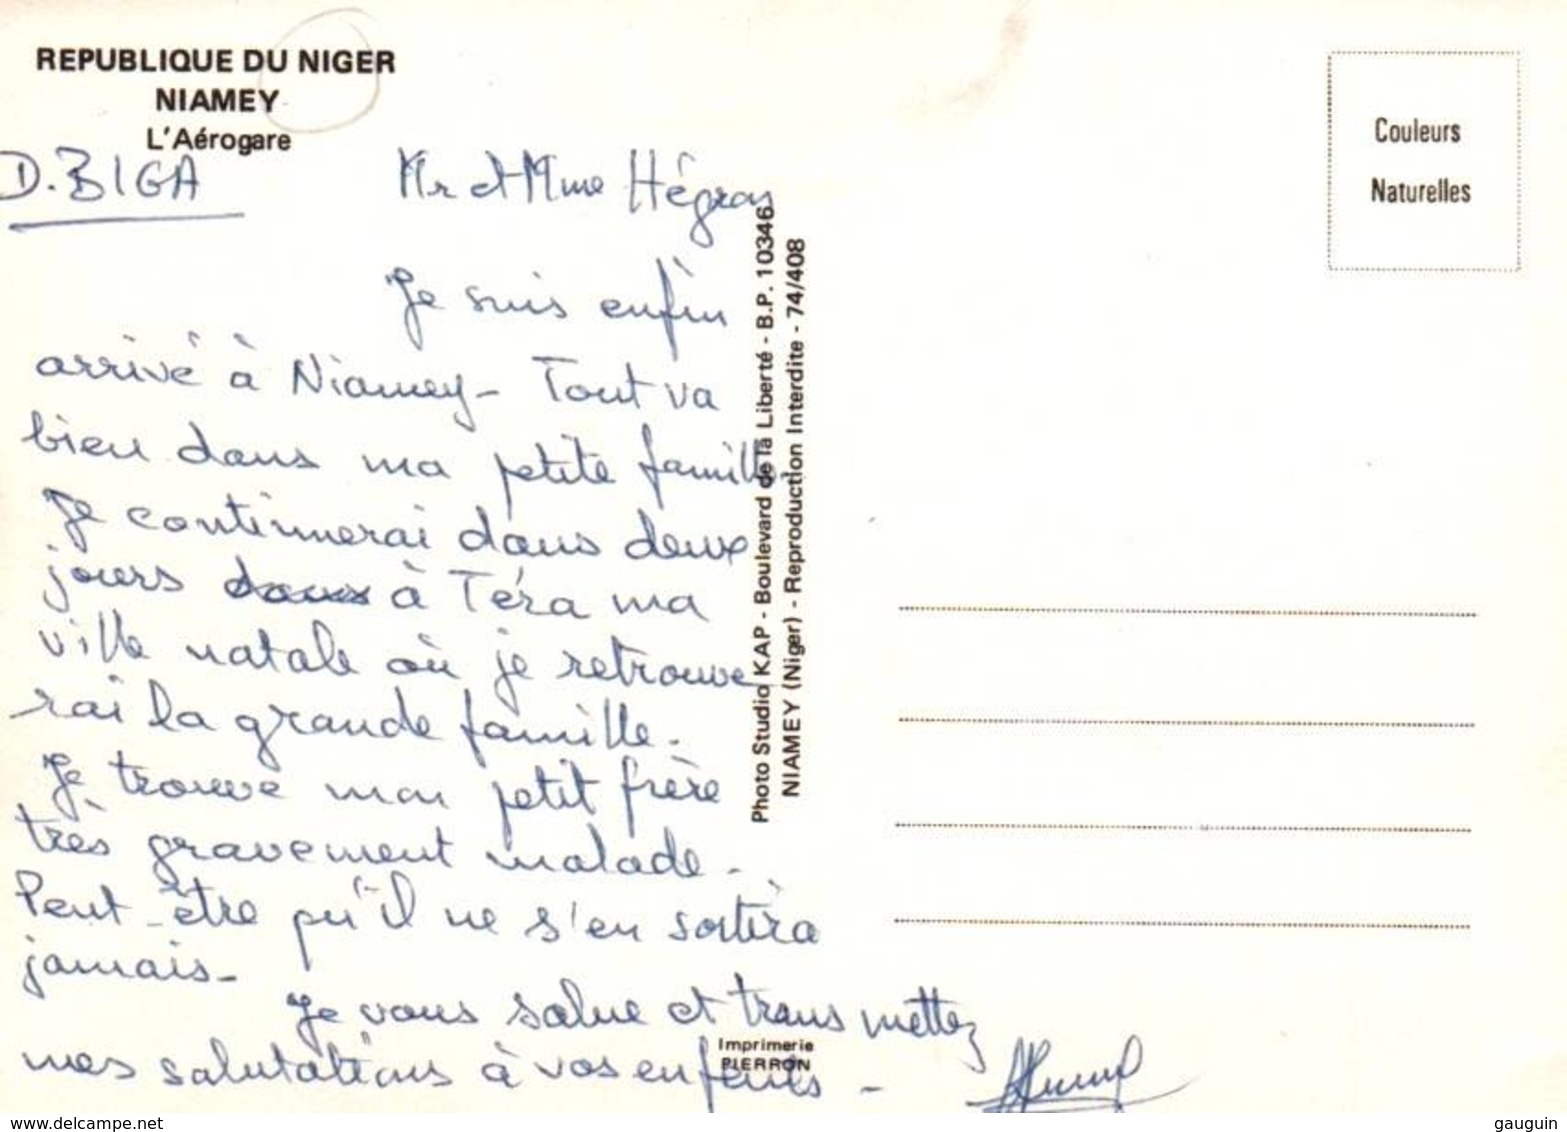 REPUBLIQUE DU NIGER
NIAMEY
L'Aérogare
D. BIGA
Mr et Mme Hégron
Je suis enfin
arrivé à Niamey - Tout va
bien dans ma petite famille.
Je continuerai dans deux
jours dans à Téra ma
ville natale où je retrouve
rai la grande famille.
Je trouve mon petit frère
très gravement malade.
Peut-être qu'il ne s'en sortira
jamais.
Je vous salue et transmettez
mes salutations à vos enfants.
Photo Studio KAP - Boulevard de la Liberté - B.P. 10346
NIAMEY (Niger) - Reproduction Interdite - 74/408
Imprimerie
PIERRON
Couleurs
Naturelles
www.delcampe.net
gauguin